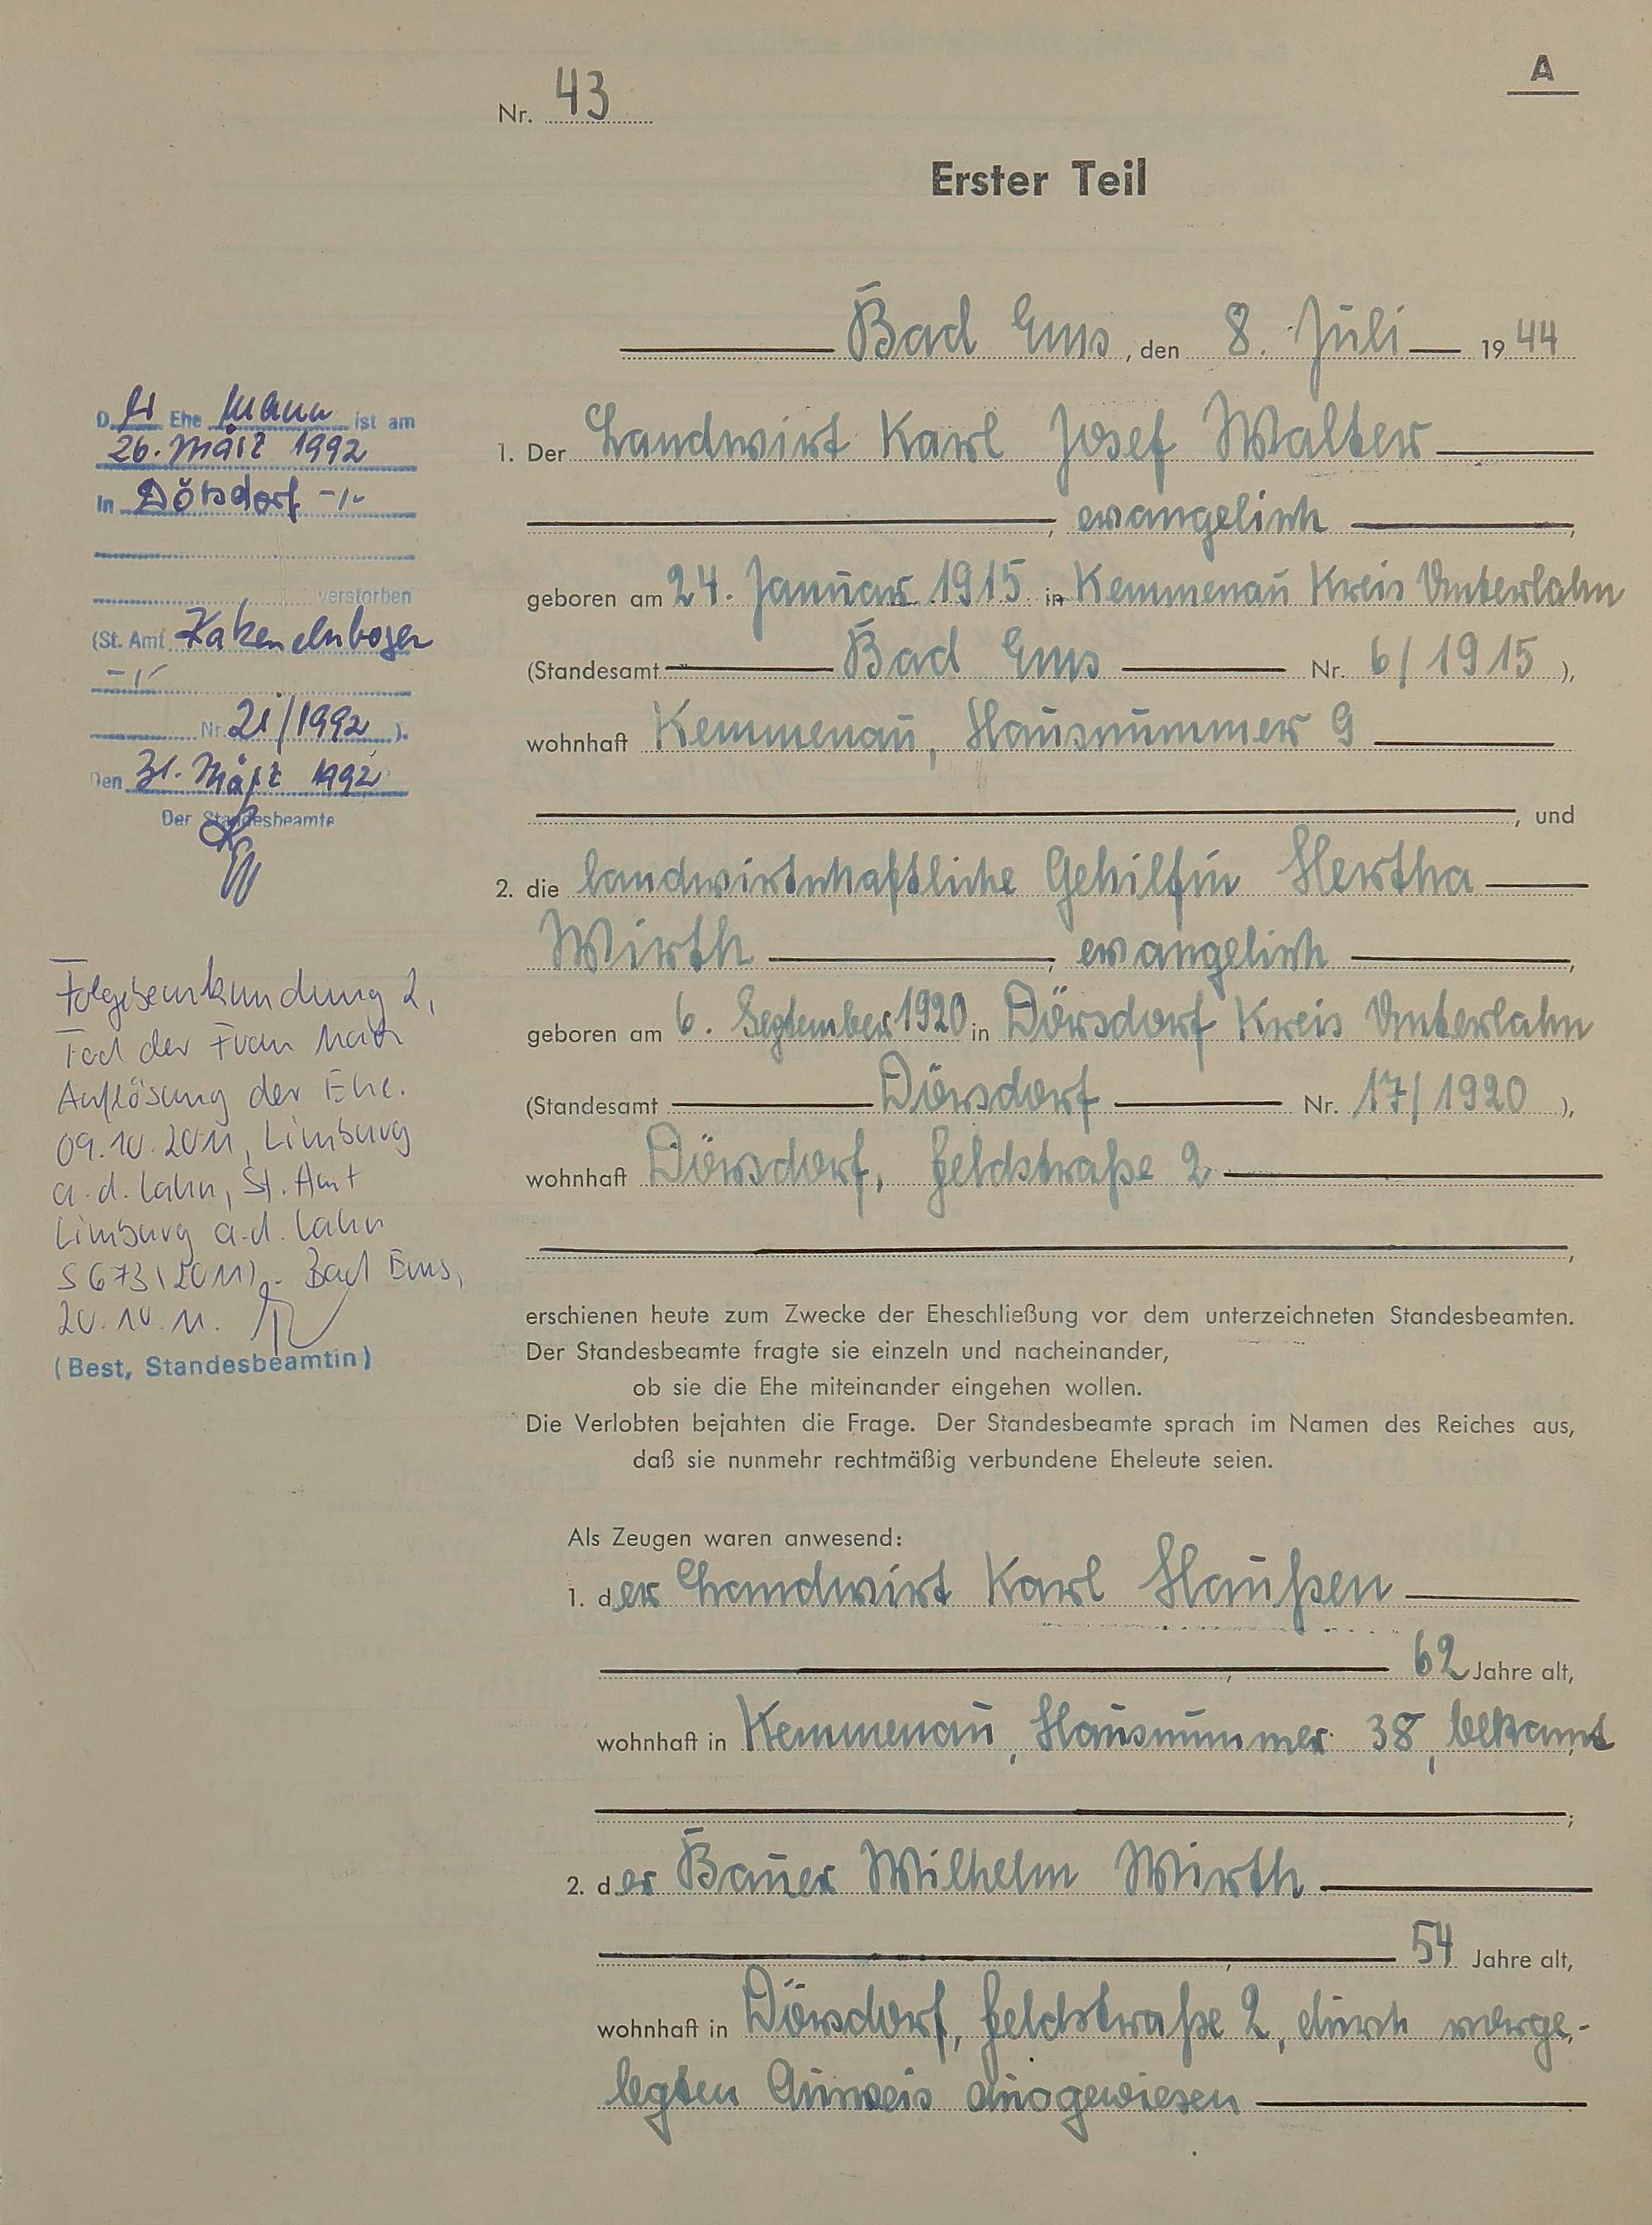 A
Nr. 43
Erster Teil
Bad Ems, den 8. Juli 1944
1. Der Landwirt Karl Josef Walter
, evangelisch ,
geboren am 24. Januar 1915 in Kemmenau Kreis Unterlahn
(Standesamt Bad Ems Nr. 6/1915 ),
wohnhaft Kemmenau, Hausnummer 9
, und
2. die landwirtschaftliche Gehilfin Hertha
Wirth , evangelisch ,
geboren am 6. September 1920 in Dörsdorf Kreis Unterlahn
(Standesamt Dörsdorf Nr. 17/1920 ),
wohnhaft Dörsdorf, Feldstraße 2
,
erschienen heute zum Zwecke der Eheschließung vor dem unterzeichneten Standesbeamten.
Der Standesbeamte fragte sie einzeln und nacheinander,
ob sie die Ehe miteinander eingehen wollen.
Die Verlobten bejahten die Frage. Der Standesbeamte sprach im Namen des Reiches aus,
daß sie nunmehr rechtmäßig verbundene Eheleute seien.
Als Zeugen waren anwesend:
1. der Landwirt Karl Haußen
, 62 Jahre alt,
wohnhaft in Kemmenau, Hausnummer 38, bekannt
;
2. der Bauer Wilhelm Wirth
, 54 Jahre alt,
wohnhaft in Dörsdorf, Feldstraße 2, durch vorge-
legten Ausweis ausgewiesen
Der Ehemann ist am
26. März 1992
In Dörsdorf -/-
verstorben
(St. Amt Katzenelnbogen
-/-
Nr. 21/1992 ).
Den 31. März 1992
Der Standesbeamte
Folgebeurkundung 2,
Tod der Frau nach
Auflösung der Ehe.
09.10.2011, Limburg
a.d. Lahn, St. Amt
Limburg a.d. Lahn
S 673 (2011).- Bad Ems,
20.10.11.
(Best, Standesbeamtin)